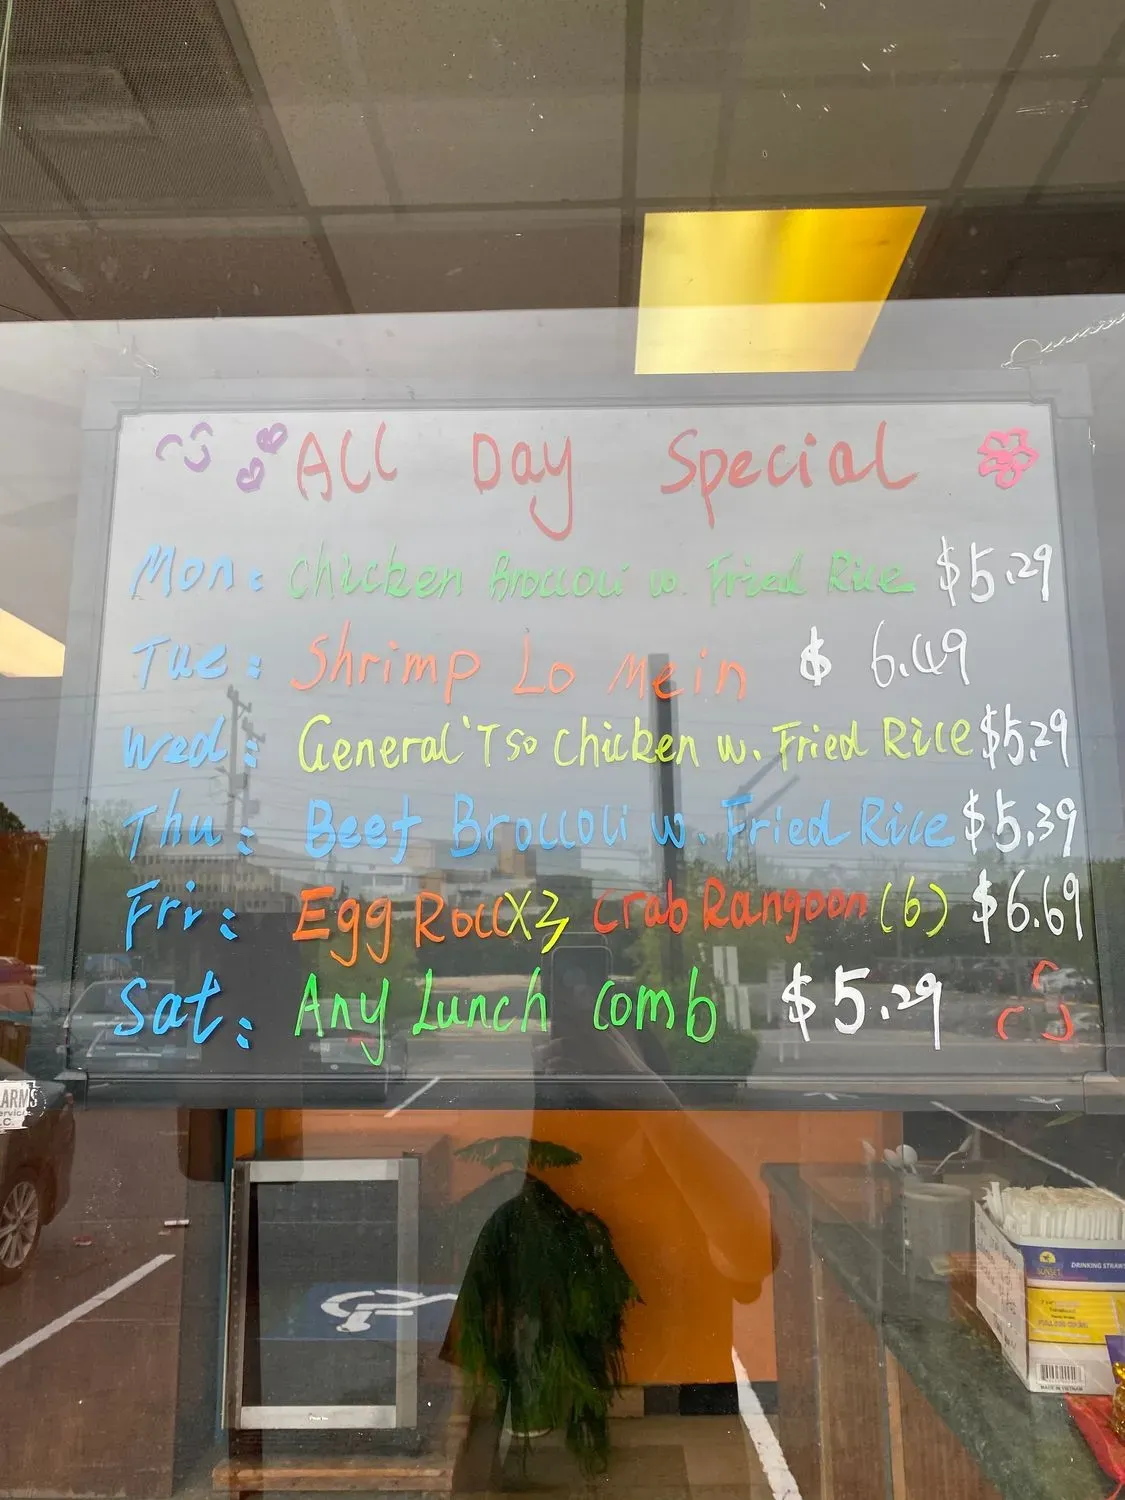 All Day Special
Mon: Chicken Broccoli w. Fried Rice $5.29
Tue: Shrimp Lo Mein $ 6.49
Wed: General'Tso Chicken w. Fried Rice $5.29
Thu: Beef Broccoli w. Fried Rice $5.39
Fri: Egg Roll X2, Crab Rangoon (6) $6.69
Sat: Any Lunch Comb $5.29
ARMS
ervice
.C.
SUNSET
DRINKING STRAW
MADE IN VIETNAM